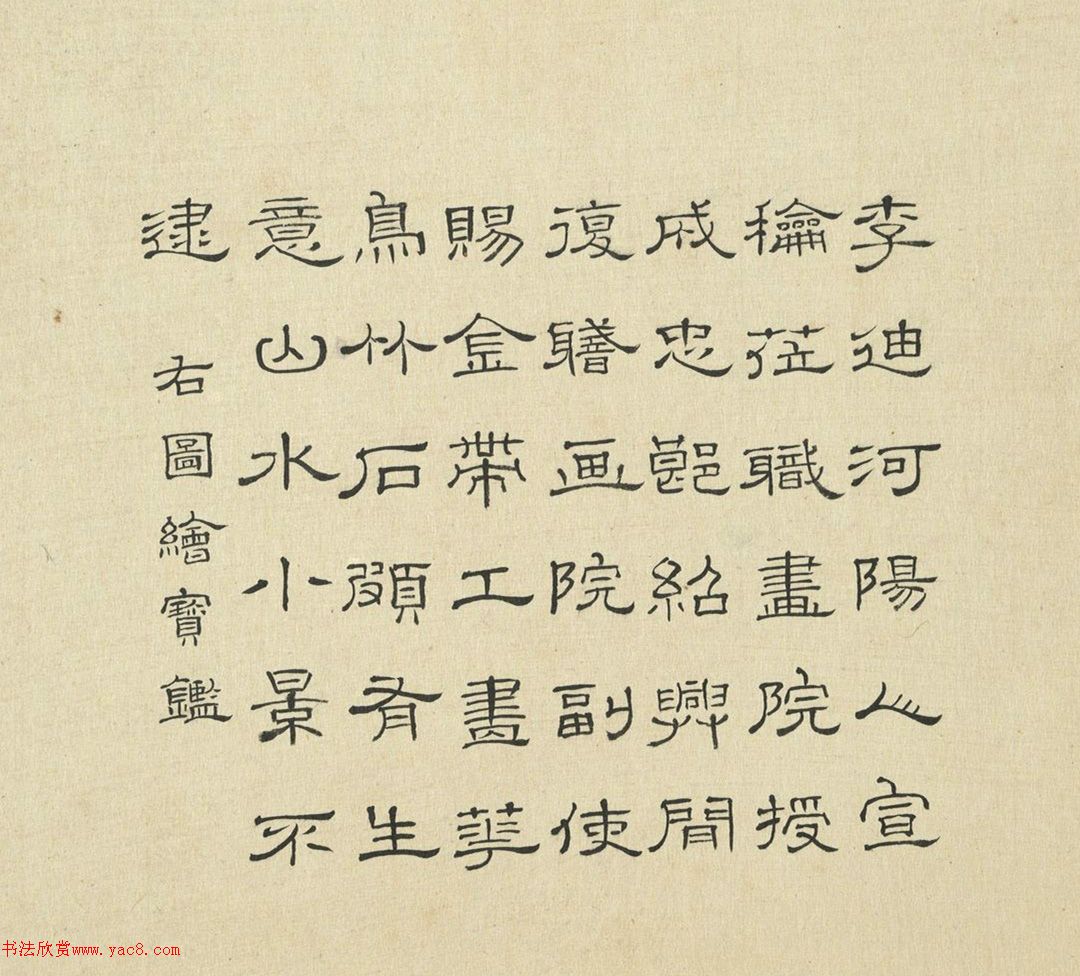 李迪河陽人宣
龢莅職畫院授
成忠郎紹興間
復職画院副使
賜金帶工畫華
鳥竹石頗有生
意山水小景不
逮
右圖繪寶鑑
书法欣赏www.yac8.com